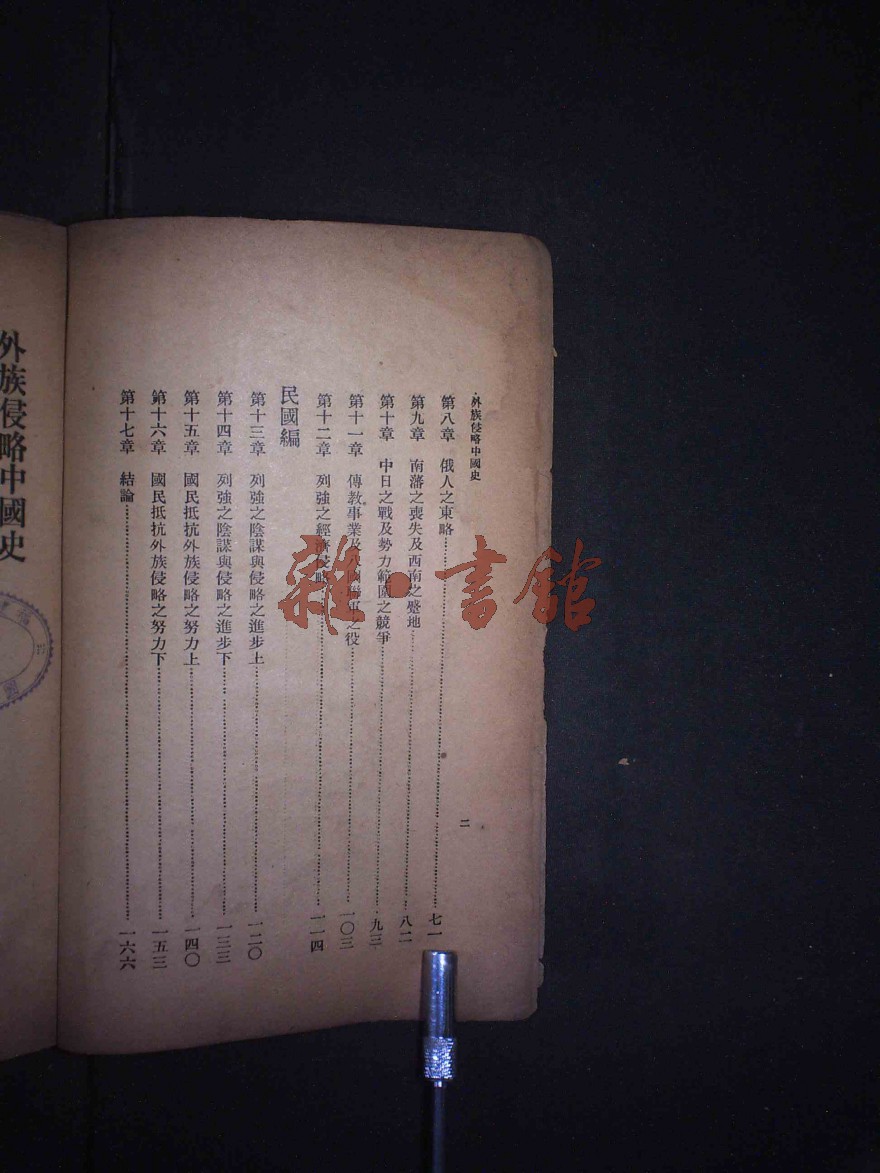 外族侵略中國史
第八章 俄人之東略 七一
第九章 南藩之喪失及西南之蹙地 八二
第十章 中日之戰及勢力範圍之競爭 九三
第十一章 傳教事業及八國聯軍之役 一〇三
第十二章 列強之經濟侵略 一一四
民國編
第十三章 列強之陰謀與侵略之進步上 一二〇
第十四章 列強之陰謀與侵略之進步下 一三三
第十五章 國民抵抗外族侵略之努力上 一四〇
第十六章 國民抵抗外族侵略之努力下 一五三
第十七章 結論 一六六
二
外族侵略中國史
雜·書館